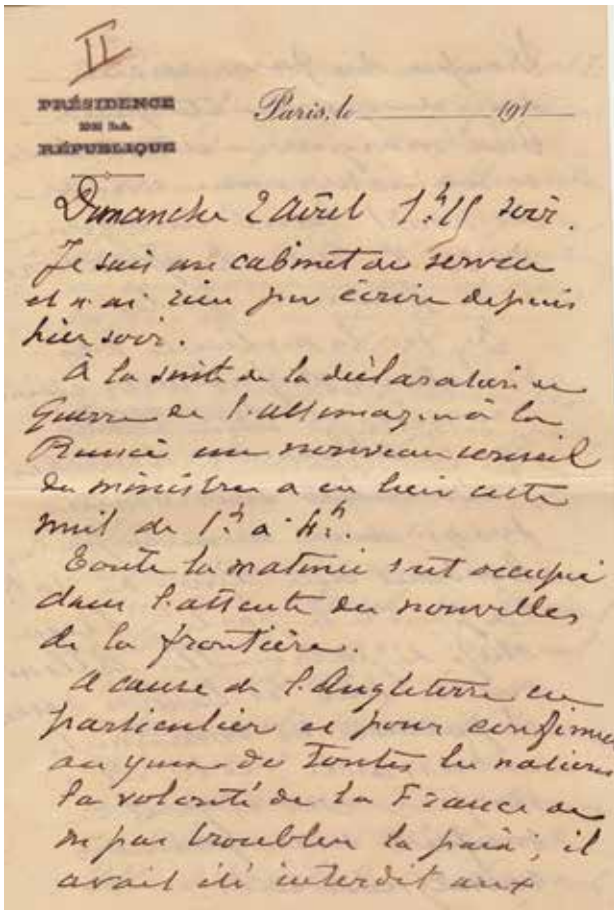 II
PRÉSIDENCE
DE LA
RÉPUBLIQUE
Paris, le 191
Dimanche 2 Août 1h.15 soir.
Je suis au cabinet de service
et n'ai rien pu écrire depuis
hier soir.
À la suite de la déclaration de
Guerre de l'Allemagne à la
Russie un nouveau conseil
de ministres a eu lieu cette
nuit de 1h. à 4h.
Toute la matinée s'est occupée
dans l'attente des nouvelles
de la frontière.
A cause de l'Angleterre en
particulier et pour confirmer
aux yeux de toutes les nations
la volonté de la France de
ne pas troubler la paix ; il
avait été interdit aux